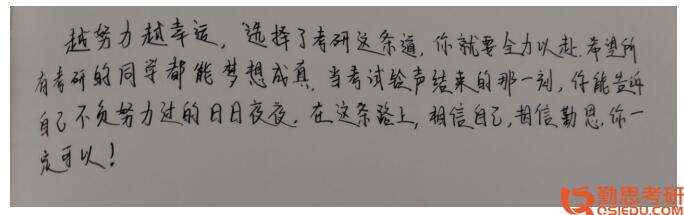 越努力越幸运,选择了考研这条道,你就要全力以赴.希望所
有考研的同学都能梦想成真.当考试铃声结束的那一刻,你能告诉
自己不负努力过的日日夜夜.在这条路上,相信自己,相信勤思.你一
定可以!
勤思考研
QSIEDU.COM